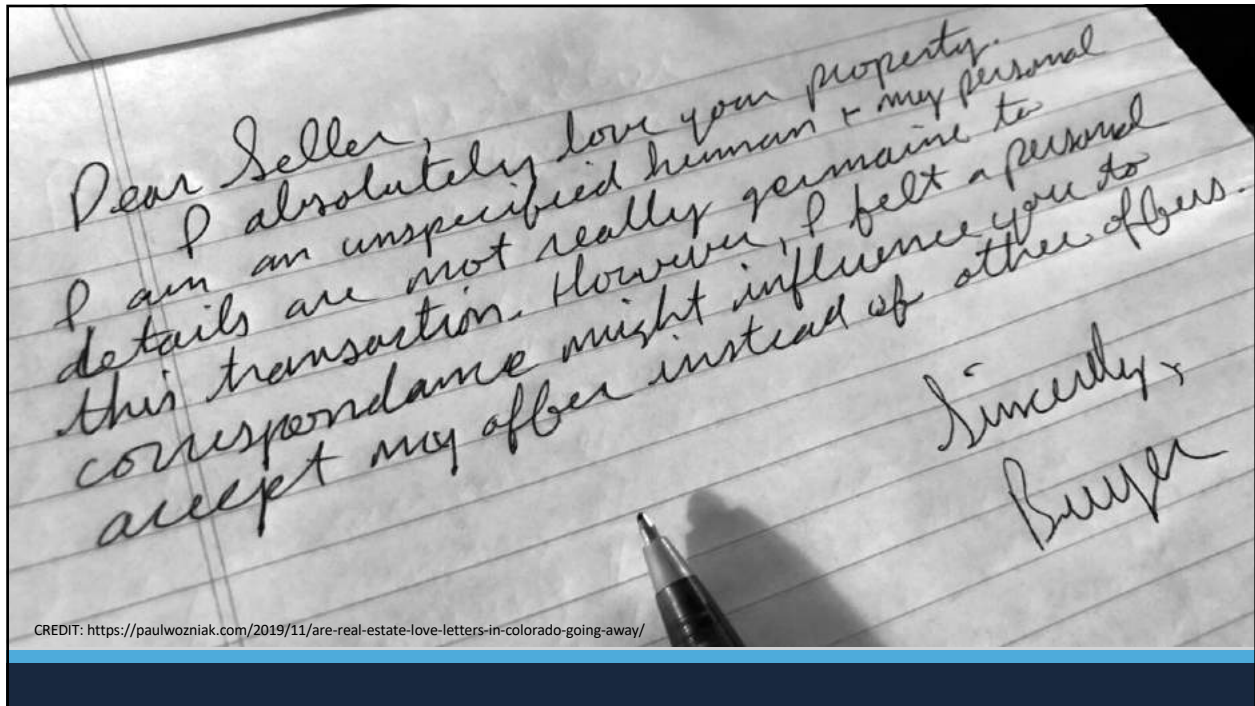 Dear Seller,
I absolutely love your property.
I am an unspecified human + my personal
details are not really germaine to
this transaction. However, I felt a personal
correspondance might influence you to
accept my offer instead of other offers.
Sincerely,
Buyer
CREDIT: https://paulwozniak.com/2019/11/are-real-estate-love-letters-in-colorado-going-away/